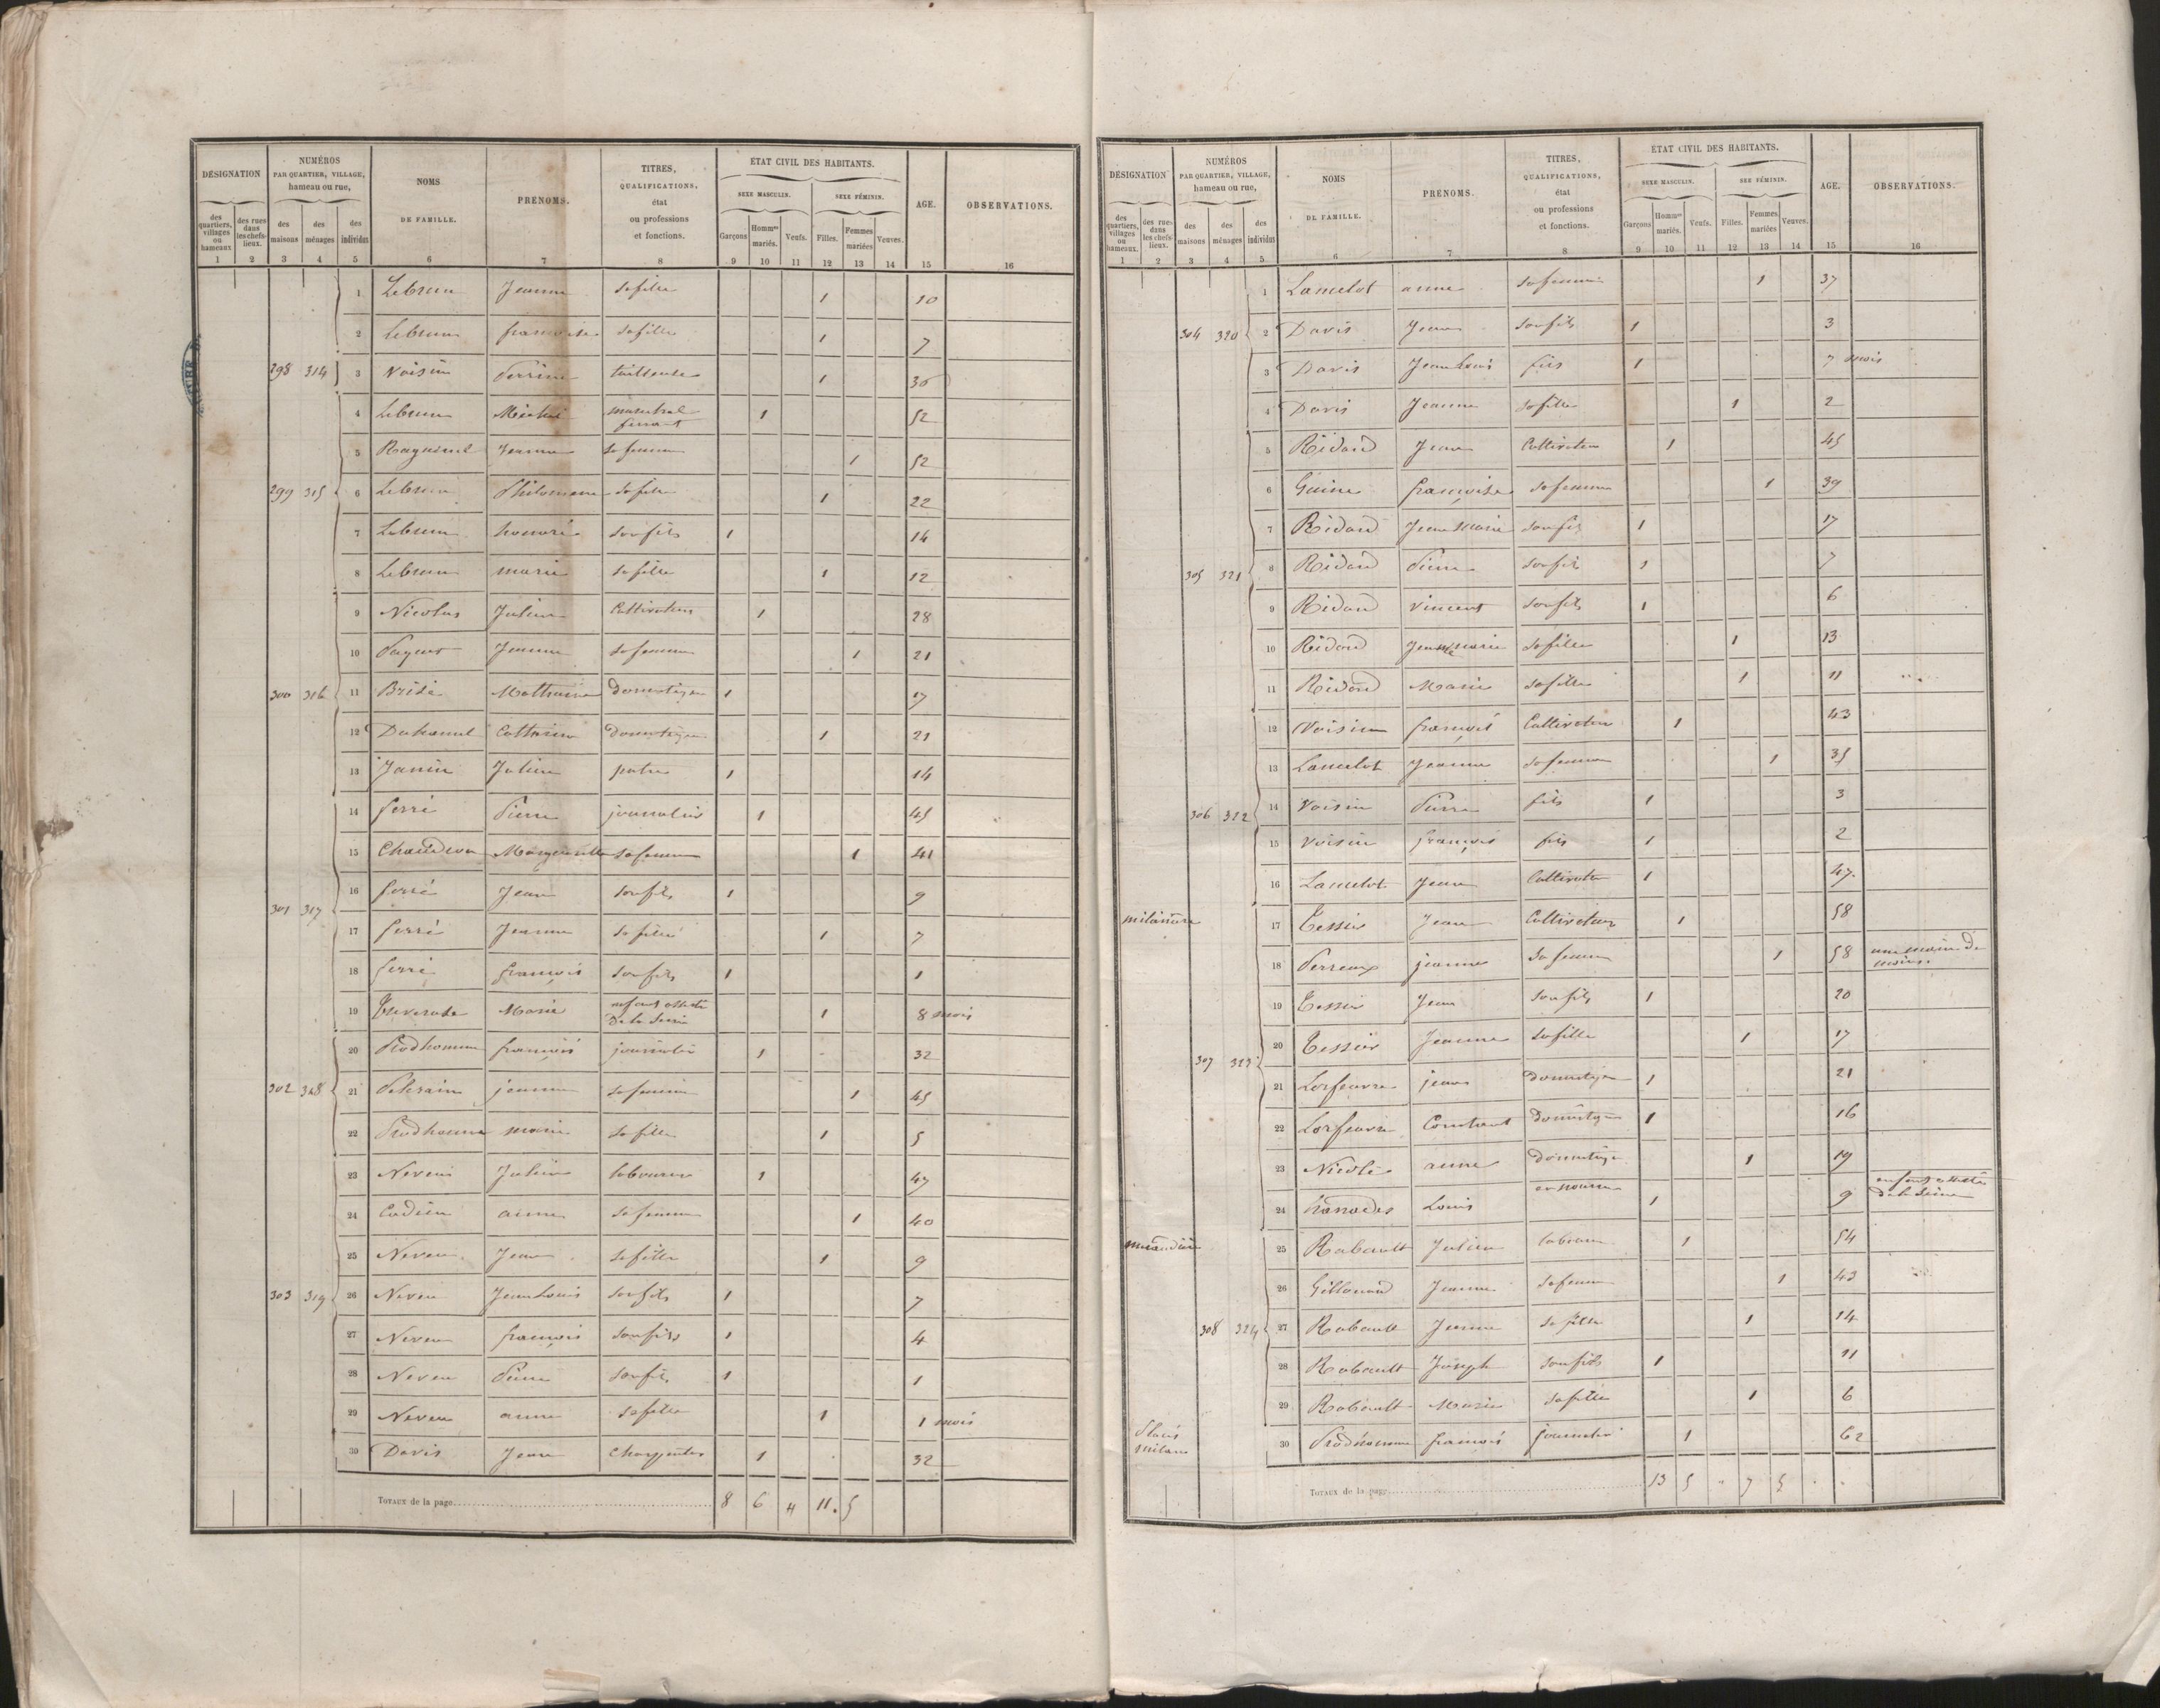 DÉSIGNATION
NUMÉROS
PAR QUARTIER, VILLAGE,
hameau ou rue,
NOMS
DE FAMILLE.
PRENOMS.
TITRES,
QUALIFICATIONS,
état
ou professions
et fonctions.
ÉTAT CIVIL DES HABITANTS.
SEXE MASCULIN.
SEXE FÉMININ.
AGE.
OBSERVATIONS.
des quartiers, villages ou hameaux
des rues dans les chefs-lieux.
des maisons
des ménages
des individus
Garçons
Hommes mariés.
Veufs.
Filles.
Femmes mariées
Veuves.
1 2 3 4 5 6 7 8 9 10 11 12 13 14 15 16
1 Lebrun Jeanne sa fille 1 10
2 Lebrun françoise sa fille 1 7
298 314 3 Voisin Perrine tailleuse 1 30
4 Lebrun Michel marechal ferrant 1 52
5 Raguinel Jeanne sa femme 1 52
299 315 6 Lebrun Philomene sa fille 1 22
7 Lebrun honoré son fils 1 14
8 Lebrun marie sa fille 1 12
9 Nicolas Julien Cultivateur 1 28
10 Jeanne sa femme 1 21
300 316 11 Mathurin domestique 1 17
12 Duhamel domestique 1 21
13 Janin Julien patre 1 14
14 ferré Pierre journalier 1 45
15 Marguerite sa femme 1 41
16 ferré Jean son fils 1 9
301 317 17 ferré Jeanne sa fille 1 7
18 ferré françois son fils 1 1
19 Marie enfant assisté de la Seine 1 8 mois
20 Prodhomme françois journalier 1 32
302 318 21 Pelerain jeanne sa femme 1 45
22 Prodhomme marie sa fille 1 5
23 Neveu Julien laboureur 1 47
24 anne sa femme 1 40
25 Neveu Jean sa fille 1 9
303 319 26 Neveu Jean Louis son fils 1 7
27 Neveu françois son fils 1 4
28 Neveu Pierre son fils 1 1
29 Neveu anne sa fille 1 1 mois
30 Davis Jean Charpentier 1 32
TOTAUX de la page 8 6 11 5
DÉSIGNATION
NUMÉROS
PAR QUARTIER, VILLAGE,
hameau ou rue,
NOMS
DE FAMILLE.
PRENOMS.
TITRES,
QUALIFICATIONS,
état
ou professions
et fonctions.
ÉTAT CIVIL DES HABITANTS.
SEXE MASCULIN.
SEE FÉMININ.
AGE.
OBSERVATIONS.
des quartiers, villages ou hameaux.
des rues dans les chefs-lieux.
des maisons
des ménages
des individus
Garçons
Hommes mariés.
Veufs.
Filles.
Femmes mariées
Veuves.
1 2 3 4 5 6 7 8 9 10 11 12 13 14 15 16
1 Lamelot anne sa femme 1 37
304 320 2 Davis Jean son fils 1 3
3 Davis Jean Louis fils 1 7 mois
4 Davis Jeanne sa fille 1 2
5 Ridard Jean Cultivateur 1 45
6 Guine françoise sa femme 1 39
7 Ridard Jean Marie son fils 1 17
305 321 8 Ridard Pierre son fils 1 7
9 Ridard vincent son fils 1 6
10 Ridard Jeanne marie sa fille 1 13
11 Ridard Marie sa fille 1 11
12 Voisin françois Cultivateur 1 43
13 Lamelot Jeanne sa femme 1 35
306 322 14 Voisin Pierre fils 1 3
15 Voisin françois fils 1 2
16 Lamelot Jean Cultivateur 1 47
17 Tessier Jean Cultivateur 1 58
18 Perreaux jeanne sa femme 1 58
19 Tessier Jean son fils 1 20
307 323 20 Tessier Jeanne sa fille 1 17
21 Lorfeuvre jean domestique 1 21
22 Lorfeuvre Constant domestique 1 16
23 Nicole anne domestique 1 19
24 Louis en nourrice 1 9 enfant assisté de la Seine
25 Rabault Julien laboureur 1 54
26 Gillouard Jeanne sa femme 1 43
308 324 27 Rabault Jeanne sa fille 1 14
28 Rabault Joseph son fils 1 11
29 Rabault Marie sa fille 1 6
30 Prodhomme françois journalier 1 62
TOTAUX de la page 13 5 " 7 5